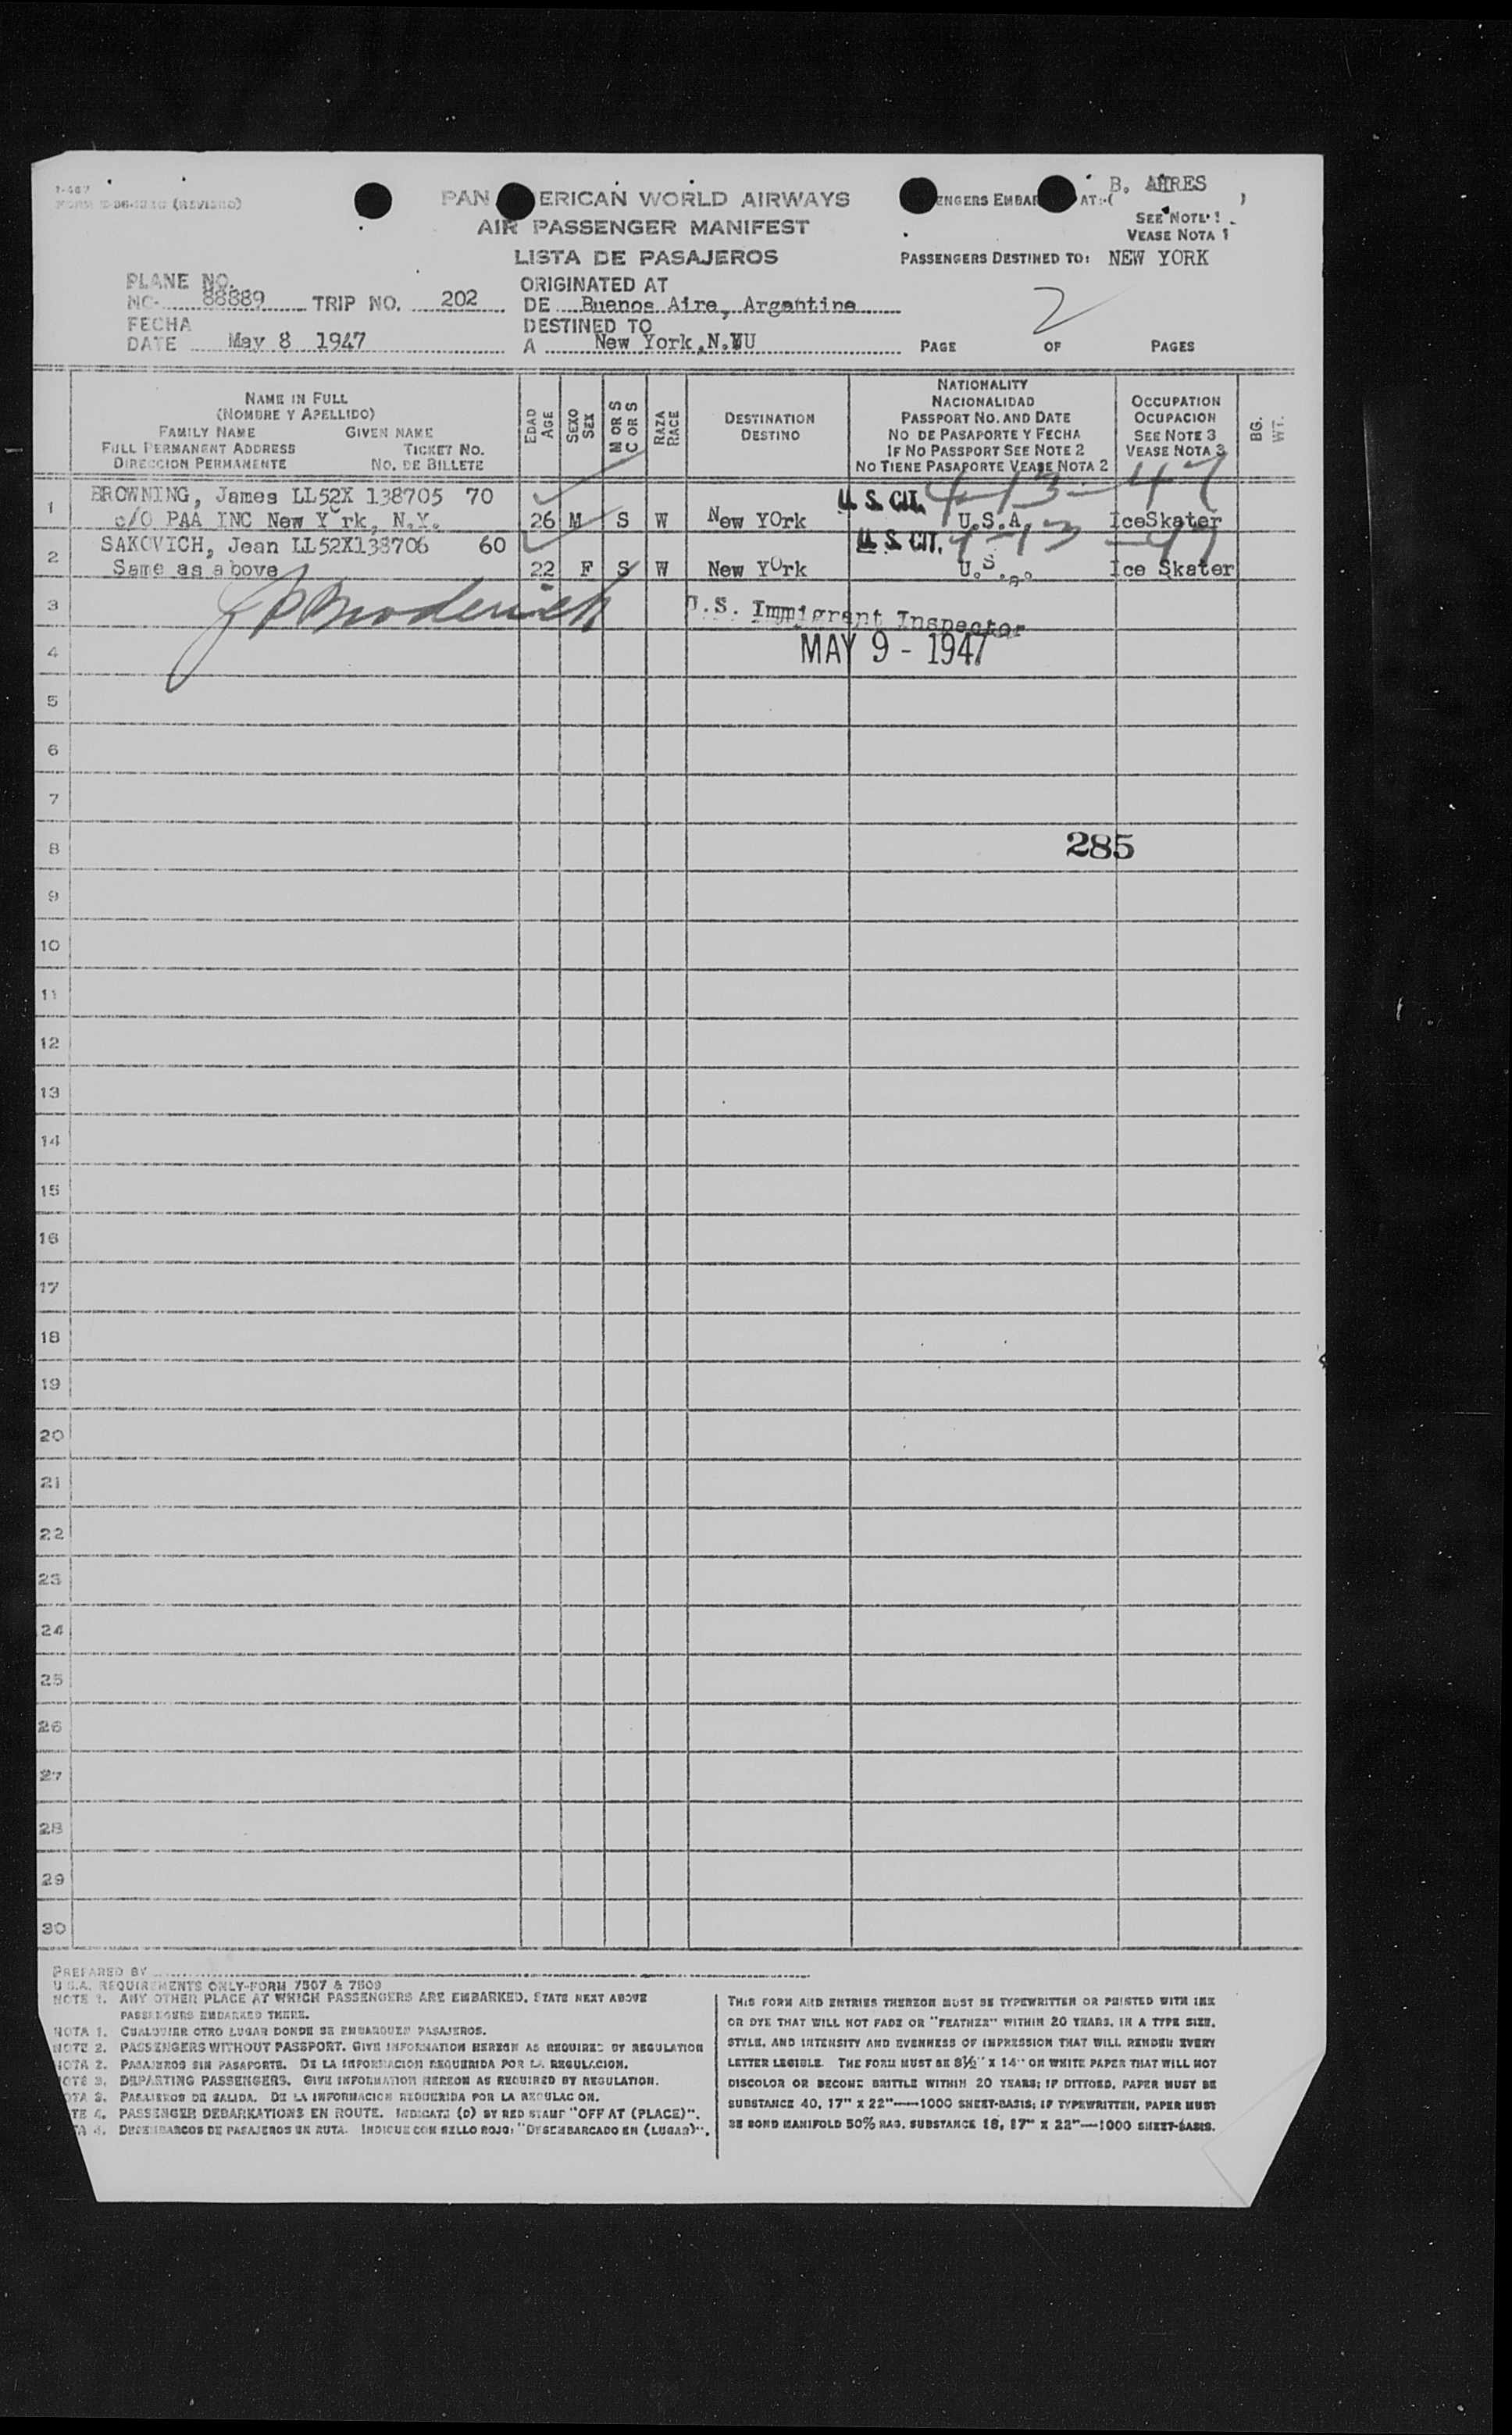 PAN ERICAN WORLD AIRWAYS
AIR PASSENGER MANIFEST
LISTA DE PASAJEROS
ENGERS EMBAR AT:-( B. AIRES )
SEE NOTE 1
VEASE NOTA 1
PASSENGERS DESTINED TO: NEW YORK
PLANE NO.
NC- 88889 TRIP NO. 202
ORIGINATED AT
DE Buenos Aire, Argentina
FECHA
DATE May 8 1947
DESTINED TO
A New York,N.YU
2
PAGE OF PAGES
NAME IN FULL
(NOMBRE Y APELLIDO)
FAMILY NAME GIVEN NAME
FULL PERMANENT ADDRESS TICKET NO.
DIRECCION PERMANENTE NO. DE BILLETE
EDAD
AGE
SEXO
SEX
M OR S
C OR S
RAZA
RACE
DESTINATION
DESTINO
NATIONALITY
NACIONALIDAD
PASSPORT NO. AND DATE
NO DE PASAPORTE Y FECHA
IF NO PASSPORT SEE NOTE 2
NO TIENE PASAPORTE VEASE NOTA 2
OCCUPATION
OCUPACION
SEE NOTE 3
VEASE NOTA 3
BG.
WT.
1 BROWNING, James LL52X 138705 70 U. S. CIT. 4-13-47
c/O PAA INC New Y rk, N.Y. 26 M S W New YOrk U.S.A. IceSkater
2 SAKOVICH, Jean LL52X138706 60 U. S. CIT. 4-13-47
Same as above 22 F S W New YOrk U.S. Ice Skater
3 U.S. Immigrant Inspector
4 MAY 9 - 1947
5
6
7
8 285
9
10
11
12
13
14
15
16
17
18
19
20
21
22
23
24
25
26
27
28
29
30
PREPARED BY
U.S.A. REQUIREMENTS ONLY-FORM 7507 & 7509
NOTE 1. ANY OTHER PLACE AT WHICH PASSENGERS ARE EMBARKED, STATE NEXT ABOVE
PASSENGERS EMBARKED THERE.
NOTA 1. CUALQUIER OTRO LUGAR DONDE SE EMBARQUEN PASAJEROS.
NOTE 2. PASSENGERS WITHOUT PASSPORT. GIVE INFORMATION HEREON AS REQUIRED BY REGULATION
NOTA 2. PASAJEROS SIN PASAPORTE. DE LA INFORMACION REQUERIDA POR LA REGULACION.
NOTE 3. DEPARTING PASSENGERS. GIVE INFORMATION HEREON AS REQUIRED BY REGULATION.
OTA 3. PASAJEROS DE SALIDA. DE LA INFORMACION REQUERIDA POR LA REGULAC ON.
TE 4. PASSENGER DEBARKATIONS EN ROUTE. INDICATE (D) BY RED STAMP "OFF AT (PLACE)".
TA 4. DESEMBARCOS DE PASAJEROS EN RUTA. INDIQUE CON SELLO ROJO: "DESEMBARCADO EN (LUGAR)".
THIS FORM AND ENTRIES THEREON MUST BE TYPEWRITTEN OR PRINTED WITH INK
OR DYE THAT WILL NOT FADE OR "FEATHER" WITHIN 20 YEARS, IN A TYPE SIZE,
STYLE, AND INTENSITY AND EVENNESS OF IMPRESSION THAT WILL RENDER EVERY
LETTER LEGIBLE. THE FORM MUST BE 8½" X 14" ON WHITE PAPER THAT WILL NOT
DISCOLOR OR BECOME BRITTLE WITHIN 20 YEARS; IF DITTOED, PAPER MUST BE
SUBSTANCE 40, 17" X 22"—1000 SHEET-BASIS; IF TYPEWRITTEN, PAPER MUST
BE BOND MANIFOLD 50% RAG, SUBSTANCE 18, 17" X 22"—1000 SHEET-BASIS.